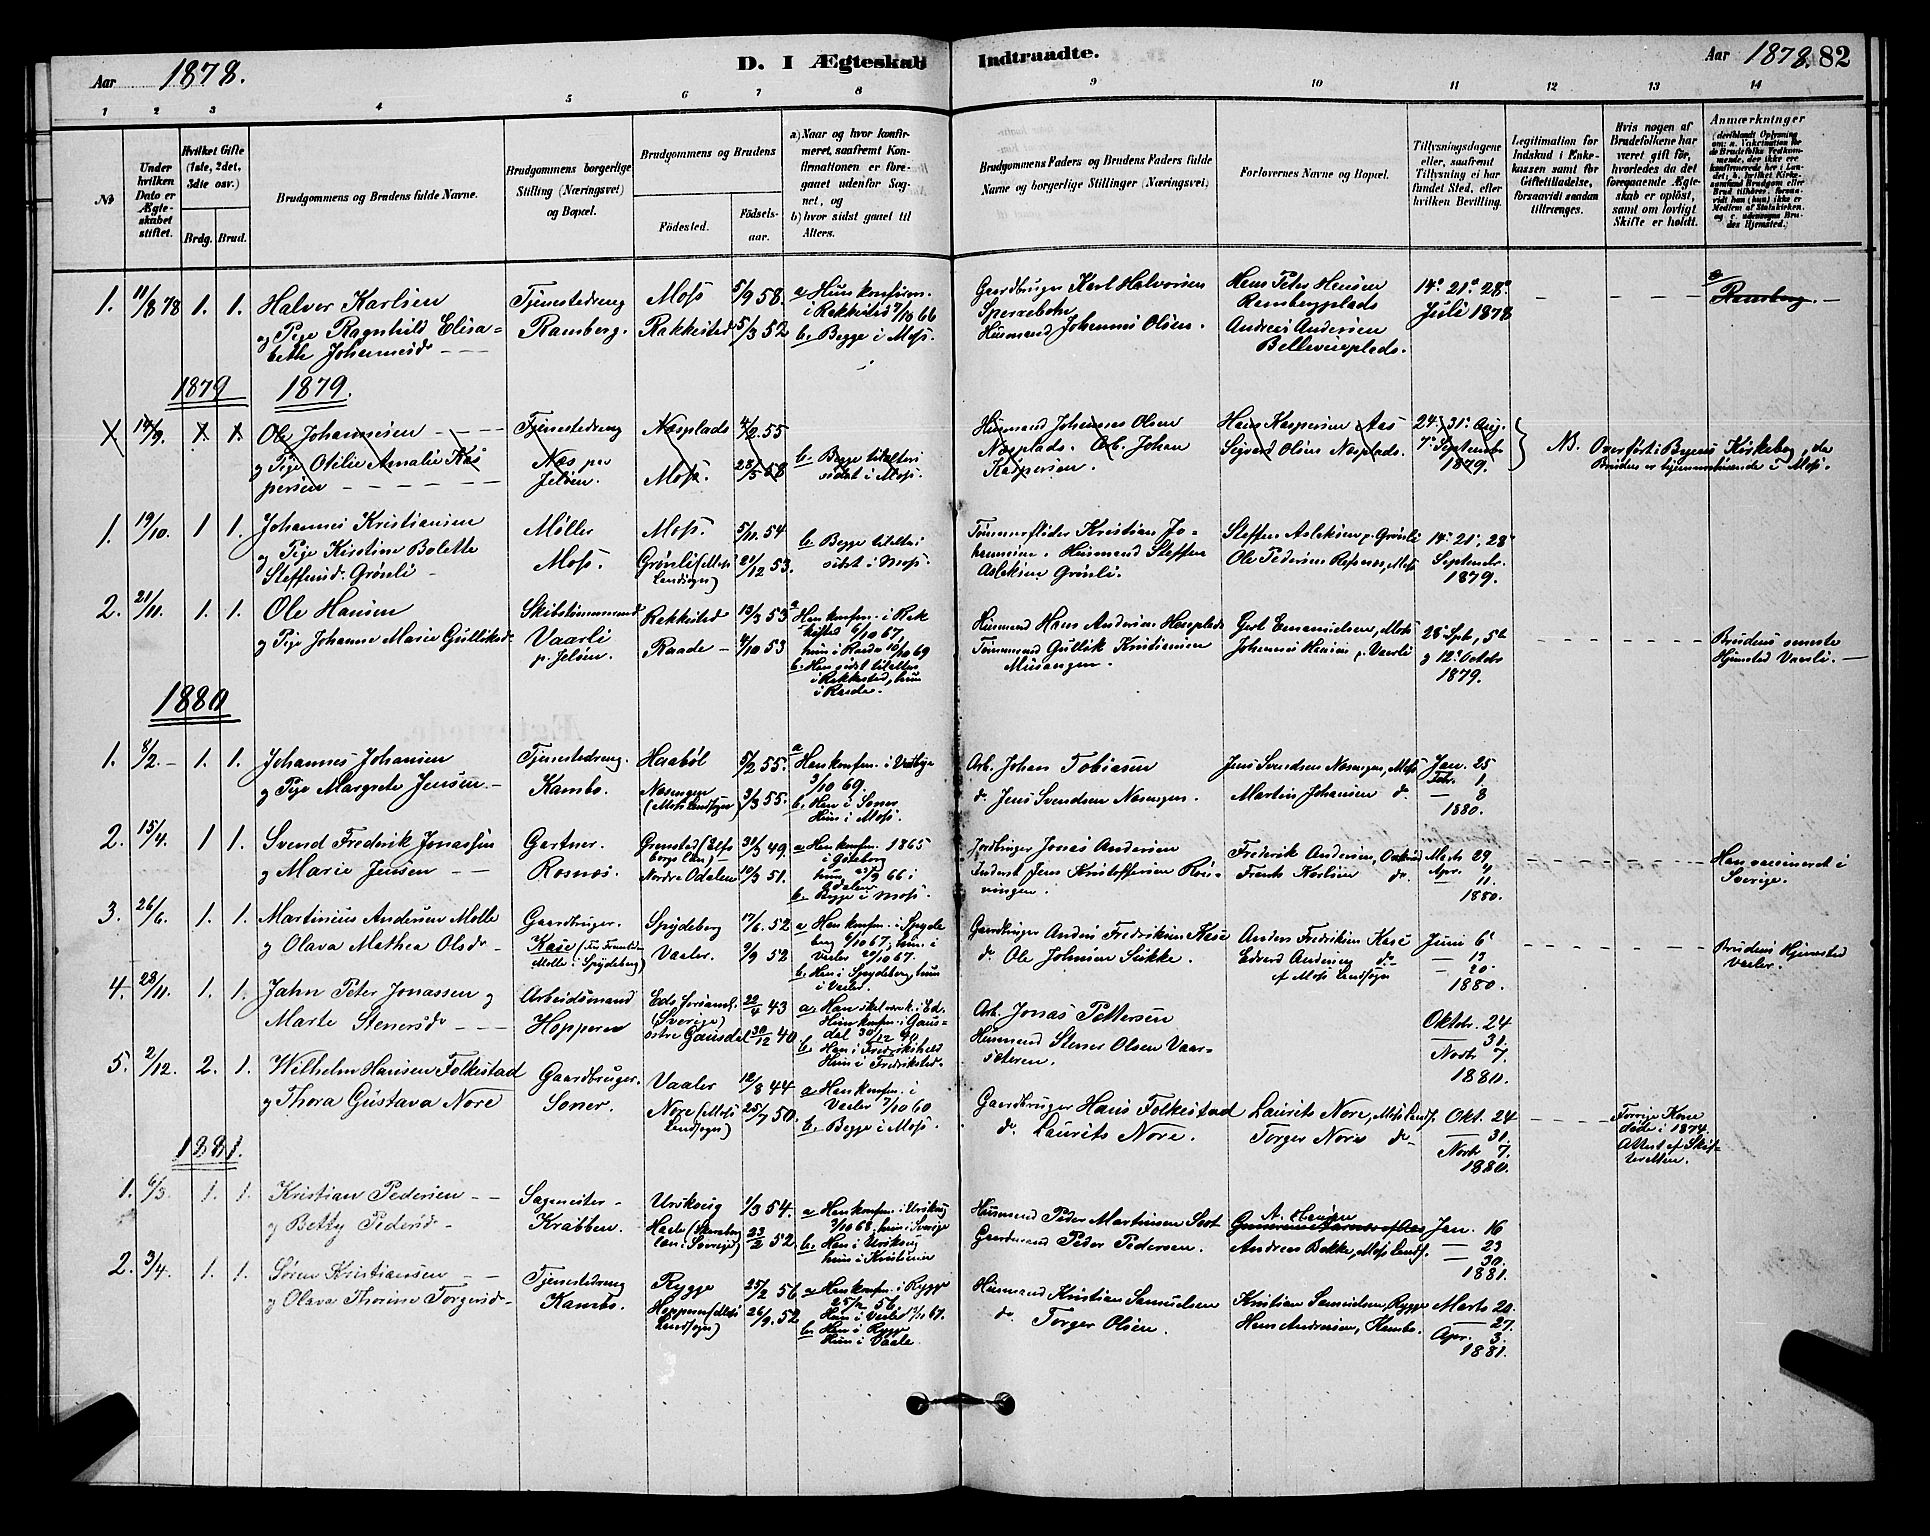 Aar 1878.
D. I Ægteskab Indtraadte.
Aar 1878. 82
1 2 3 4 5 6 7 8 9 10 11 12 13 14
No
Under hvilken Dato er Ægteskabet stiftet.
Hvilket Gifte (1ste, 2det, 3die osv.)
Brdg. Brud.
Brudgommens og Brudens fulde Navne.
Brudgommens borgerlige Stilling (Næringsvei) og Bopæl.
Brudgommens og Brudens
Fødested.
Fødselsaar.
a) Naar og hvor konfirmeret, saafremt Konfirmationen er foregaaet udenfor Sognet, og
b) hvor sidst gaaet til Alters.
Brudgommens Faders og Brudens Faders fulde Navne og borgerlige Stillinger (Næringsvei)
Forlovernes Navne og Bopæl.
Tillysningsdagene eller, saafremt Tillysning ei har fundet Sted, efter hvilken Bevilling.
Legitimation for Indskud i Enkekassen samt for Giftetilladelse, forsaavidt saadan tiltrænges.
Hvis nogen af Brudefolkene har været gift før, hvorledes da det foregaaende Ægteskab er opløst, samt om lovligt Skifte er holdt.
Anmærkninger
1. 11/8 78 1. 1. Halver Karlsen
og Pige Ragnhild Elisabeth Johannesd.
Tjenestedreng Ramberg.
Moss 5/9 58.
Rakkestad 5/3 52
a Hun konfirm. i Rakkestad 7/10 66
b. Begge i Moss.
Gaardbruger Karl Halvorsen
Husmand Johannes Olsen.
Hans Peter Hansen Rambergplads
Andreas Andersen Bellevueplads.
14. 21. 28. Juli 1878
Ramberg.
1879 1879.
14/9. 1. 1. Ole Johannesen
og Pige Otilie Amalie Kaspersen
Tjenestedreng Næs pr Jeløen.
Næsplads 4/2. 55
Moss. 28/5 58
b. Begge til alters sidst i Moss.
Husmand Johannes Olsen Næsplads. Arb. Johan Kaspersen.
Hans Kaspersen Aas
Sigvard Olsen Næsplads.
24. 31. Aug. 7. September 1879.
NB. Overført i Byens Kirkebog, da Bruden er hjemmehørende i Moss.
1. 19/10. 1 1. Johannes Kristiansen
og Pige Kirstine Bolette Steffensd. Grønli
Møller Moss.
Moss. 5/11. 54
Grønli (Moss Landsogn) 21/12 53.
b. Begge til alters sidst i Moss.
Tømmerfløder Kristian Johannesen. Husmand Steffen Aslaksen Grønli.
Steffen Aslaksen p. Grønli
Ole Pedersen Rosnes, Moss
14. 21. 28. Septembr. 1879.
2. 21/11. 1. 1. Ole Hansen
og Pige Johanne Marie Gulliksd.
Skibstømmermand Vaarli p. Jeløen.
Rakkestad 13/3 53
Raade 4/10 53
a Han konfm. i Rakkestad 6/10 67, hun i Raade 10/10 69
b. Han sidst til alters i Rakkestad, hun i Raade.
Husmand Hans Andersen
Tømmermand Gullik Kristiansen
Gert Emanuelsen, Moss
Johannes Hansen p. Vaarli
28. Sptb., 5te og 12. Octobr 1879.
Brudens seneste Hjemsted Vaarli.
1880
1. 8/2. 1. 1. Johannes Johansen
og Pige Margrete Jensen.
Tjenestedreng. Kambo.
Haabøl 5/2 55.
Næsengen (Moss Landsogn) 3/3 55.
a Han konfm. i Vestby 3/10 69.
b. Han i Soner Hun i Moss.
Arb. Johan Tobiasen
do. Jens Svendsen Næsengen.
Jens Svendsen Næsengen, Moss
Martin Johansen do.
Jan. 25 Febr. 1. 8 1880.
2. 15/4. 1 1. Svend Fredrik Jonassen
og Marie Jensen
Gartner. Rosnæs.
Grimstad (Elfsborgs Län) 31/3 49.
Nordre Odalen 10/3 51.
a Han konfm. 1865 i Göteborg hun 23/9 66 i Odalen
b. Begge i Moss.
Jordbruger Jonas Andersen
Inderst Jens Kristoffersen
Frederik Andersen
Frants Karlsen do.
Marts 29 Apr. 4 11. 1880.
Han vaccineret i Sverige.
3. 26/6. 1. 1. Martinius Andersen Molle
og Olava Mathea Olsdr
Gaardbruger. Kase
Molle i Spydeberg)
Spydeberg 17/6. 52
Vaaler. 9/9 52
a Han konfm. i Spydeberg 6/10 67, hun i Vaaler 29/10 67.
b. Han i Spydeberg, hun i Vaaler.
Gaardbruger Anders Fredriksen Kase
do. Ole Johnsen Sukke.
Anders Fredriksen Kase
Edvard Andersen do af Moss Landsogn
Juni 6. 13 20. 1880.
Brudens Hjemsted Vaaler.
4. 28/11. 1. 1. Jahn Peter Jonassen og
Marte Stenersdr
Arbeidsmand Hopperen
Eds (Sverige) 22/4 43
Østre Gausdal 30/12 40.
a. Han skal være k. i Ed. Hun konfm. i Gausdal
b. Han i Fredrikshald Hun i Fredrikstad.
Arb. Jonas Pettersen
Husmand Stener Olsen
Oktobr. 24 31. Novbr 7. 1880.
5. 2/12. 2. 1. Wilhelm Hansen Folkestad
og Thora Gustava Nore
Gaardbruger. Soner.
Vaaler 12/8 44
Nore (Moss Landsogn) 25/7 50.
a Han konfm. i Vaaler 7/10 60
b. Begge i Moss.
Gaardbruger Hans Folkestad
do. Laurits Nore.
Laurits Nore, Moss Lands.
Torger Nore do
Okt. 24 31. Novbr 7. 1880.
Forrige Kone døde i 1874. Attest af Skifteretten.
1881.
1. 6/3. 1. 1. Kristian Pedersen
og Betty Pedersdr
Sagmester Krabben.
Urskoug 1/3 54.
23/2 52.
a Han konfm. i Urskoug 3/10 68, hun i Sverige
b. Han i Urskoug hun i Kristiania
Husmand Peder Martinsen
Gaardmand Peder Pedersen.
A. Hansen
Andreas Bakke, Moss Lands.
Jan. 16 23 30. 1881.
2. 3/4. 1. 1. Søren Kristiansen
og Olava Thorine Torgersdr
Tjenestedreng Kambo.
Rygge 25/2 56
Hopperen (Moss Landsogn) 26/9. 52
a Han konfm. i Rygge 25/2 56 Hun i Vaaler 1/10 67.
b. Han i Rygge Hun i Vaaler.
Husmand Kristian Samuelsen
do. Torger Olsen.
Kristian Samuelsen, Rygge
Hans Andersen, Kambo.
Marts 20. 27. Apr. 3. 1881.